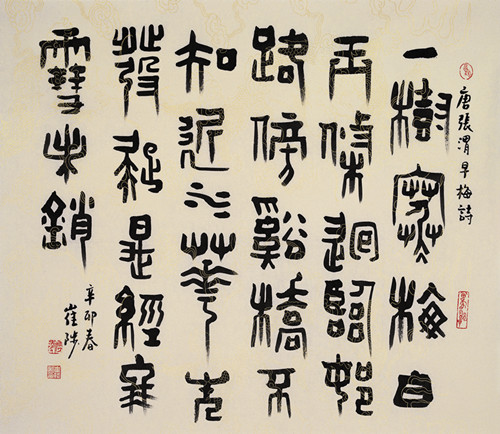 唐張渭早梅詩
一樹寒梅白
玉條迥臨邨
路傍谿橋不
知近水華先
發疑是經冬
雪未銷
辛卯春
崔陟